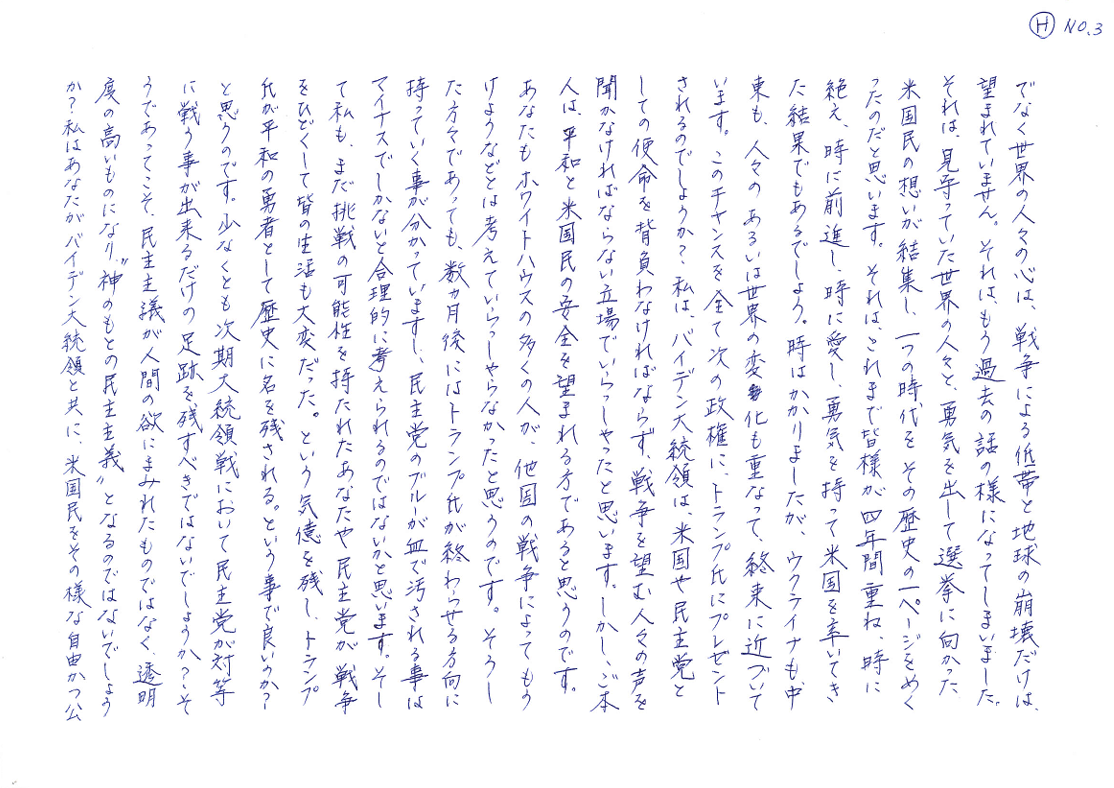 Ⓗ NO.3
でなく世界の人々の心は、戦争による低帯と地球の崩壊だけは、
望まれていません。それは、もう過去の話の様になってしまいました。
それは、見守っていた世界の人々と、勇気を出して選挙に向かった
米国民の想いが結集し、一つの時代をその歴史の一ページをめく
ったのだと思います。それは、これまで皆様が四年間重ね、時に
絶え、時に前進し、時に愛し、勇気を持って米国を率いてき
た結果でもあるでしょう。時はかかりましたが、ウクライナも、中
東も、人々のあるいは世界の変化も重なって、終末に近づいて
います。このチャンスを全て次の政権に、トランプ氏にプレゼント
されるのでしょうか?私は、バイデン大統領は、米国や民主党と
しての使命を背負わなければならず、戦争を望む人々の声を
聞かなければならない立場でいらっしゃったと思います。しかし、ご本
人は、平和と米国民の安全を望まれる方であると思うのです。
あなたもホワイトハウスの多くの人が、他国の戦争によってもう
けようなどとは考えていらっしゃらなかったと思うのです。そうし
た方々であっても、数ヵ月後にはトランプ氏が終わらせる方向に
持っていく事が分かっていますし、民主党のブルーが血で汚される事は
マイナスでしかないと合理的に考えられるのではないかと思います。そし
て私も、まだ挑戦の可能性を持たれたあなたや民主党が戦争
をひどくして皆の生活も大変だった。という気億を残し、トランプ
氏が平和の勇者として歴史に名を残される。という事で良いのか?
と思うのです。少なくとも次期大統領戦において民主党が対等
に戦う事が出来るだけの足跡を残すべきではないでしょうか?そ
うであってこそ、民主主議が人間の欲にまみれたものではなく、透明
度の高いものになり〝神のもとの民主主義〟となるのではないでしょう
か?私はあなたがバイデン大統領と共に、米国民をその様な自由かつ公